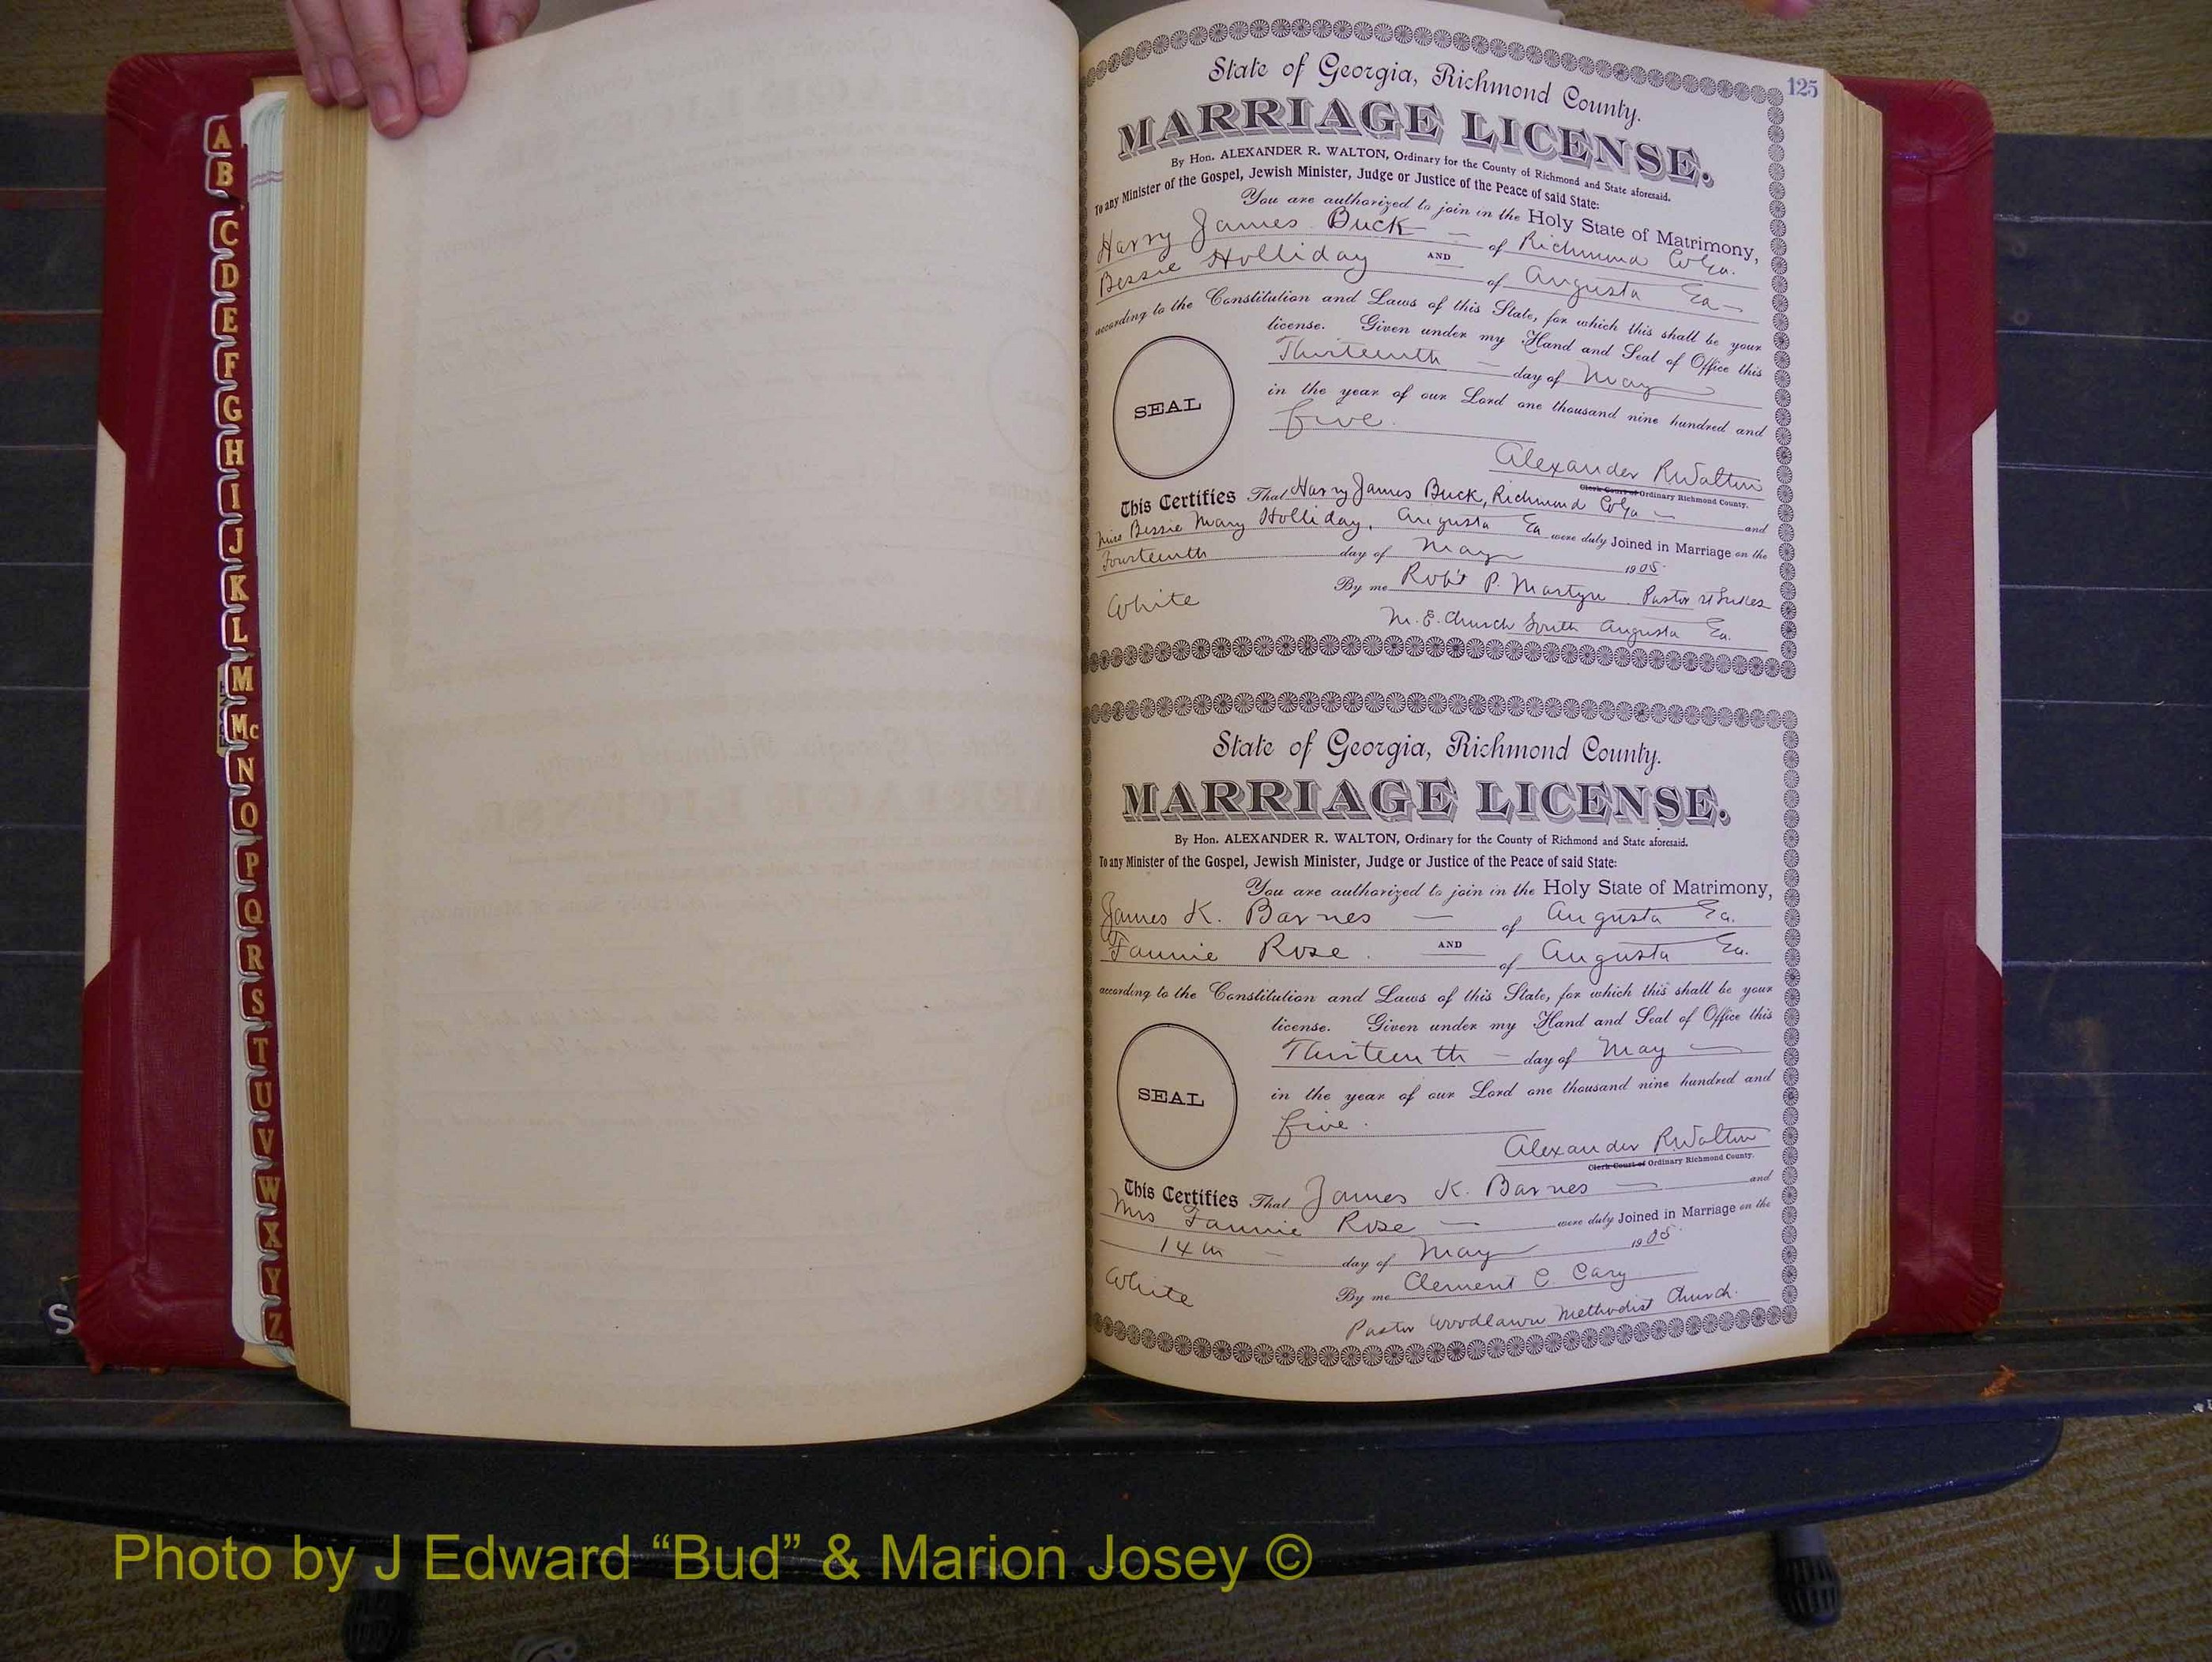 A
B
C
D
E
F
G
H
I
J
K
L
M
Mc
N
O
P
Q
R
S
T
U
V
W
X
Y
Z
S
125
State of Georgia, Richmond County.
MARRIAGE LICENSE.
By Hon. ALEXANDER R. WALTON, Ordinary for the County of Richmond and State aforesaid.
To any Minister of the Gospel, Jewish Minister, Judge or Justice of the Peace of said State:
You are authorized to join in the Holy State of Matrimony,
Harry James Buck - of Richmond Co Ga.
AND
Bessie Holliday of Augusta Ga -
according to the Constitution and Laws of this State, for which this shall be your
license. Given under my Hand and Seal of Office this
Thirteenth - day of May
SEAL
in the year of our Lord one thousand nine hundred and
five.
Alexander R Walton
Clerk Court of Ordinary Richmond County.
This Certifies That Harry James Buck, Richmond Co Ga - and
Miss Bessie Mary Holliday, Augusta Ga were duly Joined in Marriage on the
Fourteenth day of May 1905
By me Rob't P. Martyn Pastor St Lukes
White
M. E. Church South Augusta Ga.
State of Georgia, Richmond County.
MARRIAGE LICENSE.
By Hon. ALEXANDER R. WALTON, Ordinary for the County of Richmond and State aforesaid.
To any Minister of the Gospel, Jewish Minister, Judge or Justice of the Peace of said State:
You are authorized to join in the Holy State of Matrimony,
James K. Barnes - of Augusta Ga.
AND
Fannie Rose. of Augusta Ga.
according to the Constitution and Laws of this State, for which this shall be your
license. Given under my Hand and Seal of Office this
Thirteenth - day of May -
SEAL
in the year of our Lord one thousand nine hundred and
five.
Alexander R Walton
Clerk Court of Ordinary Richmond County.
This Certifies That James K. Barnes - and
Mrs Fannie Rose - were duly Joined in Marriage on the
14th - day of May 1905
By me Clement C. Cary
White
Pastor Woodlawn Methodist Church.
Photo by J Edward “Bud” & Marion Josey ©